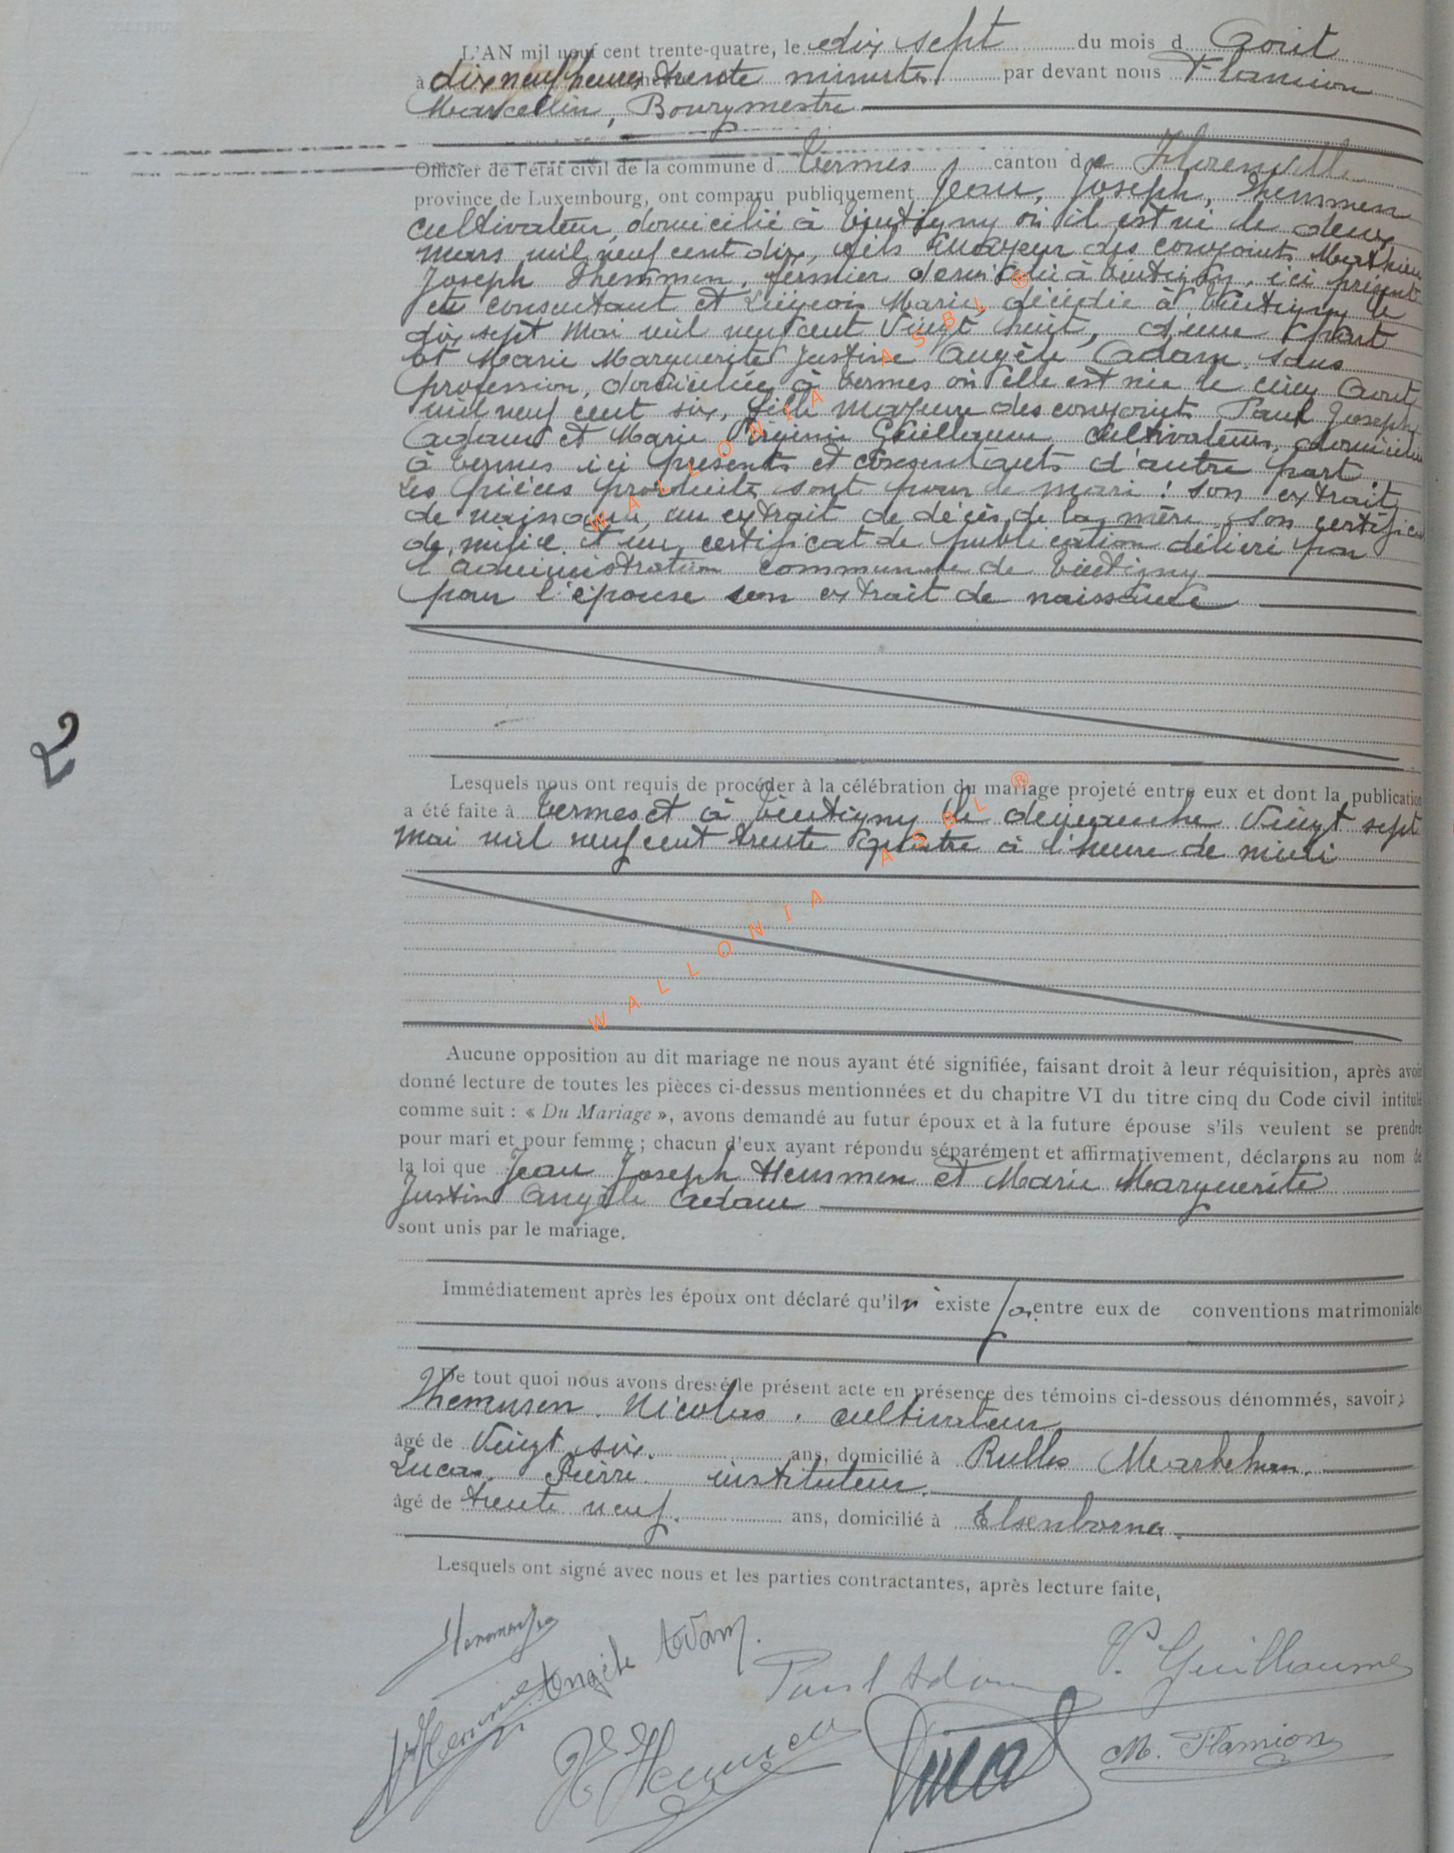 L'AN mil neuf cent trente-quatre, le dix sept du mois d Août
à dix neuf heures trente minutes par devant nous Flamion
Marcellin, Bourgmestre
Officier de l'état civil de la commune d Termes canton de Florenville
province de Luxembourg, ont comparu publiquement Jean, Joseph, Themmen
cultivateur, domicilié à Tintigny où il est né le deux
mars mil neuf cent dix, fils majeur des conjoints Mathieu
Joseph Themmen, fermier domicilié à Tintigny, ici présent
et consentant et Liégeois Marie, décédée à Tintigny le
dix sept Mai mil neuf cent vingt huit, d'une part
et Marie Marguerite Justine Angèle Adam sans
profession, domiciliée à Termes où elle est née le cinq Août
mil neuf cent six, fille majeure des conjoints Paul Joseph
Adam et Marie Virginie Guillaume cultivateurs, domiciliés
à Termes ici présents et consentants d'autre part.
Les pièces produites sont pour le mari : son extrait
de naissance, un extrait de décès de la mère, son certificat
de milice et un certificat de publication délivré par
l'administration communale de Tintigny
pour l'épouse son extrait de naissance
2
Lesquels nous ont requis de procéder à la célébration du mariage projeté entre eux et dont la publication
a été faite à Termes et à Tintigny le dimanche vingt sept
Mai mil neuf cent trente quatre à l'heure de midi
Aucune opposition au dit mariage ne nous ayant été signifiée, faisant droit à leur réquisition, après avoir
donné lecture de toutes les pièces ci-dessus mentionnées et du chapitre VI du titre cinq du Code civil intitulé
comme suit : « Du Mariage », avons demandé au futur époux et à la future épouse s'ils veulent se prendre
pour mari et pour femme ; chacun d'eux ayant répondu séparément et affirmativement, déclarons au nom de
la loi que Jean Joseph Hemmen et Marie Marguerite
Justine Angèle Adam
sont unis par le mariage.
Immédiatement après les époux ont déclaré qu'il n'existe pas entre eux de conventions matrimoniales
De tout quoi nous avons dressé le présent acte en présence des témoins ci-dessous dénommés, savoir :
Themmen. Nicolas. cultivateur
âgé de vingt six. ans, domicilié à Rulles Marbehan.
Lucas. Pierre. instituteur.
âgé de trente neuf. ans, domicilié à Elsenborn.
Lesquels ont signé avec nous et les parties contractantes, après lecture faite,
Angèle Adam.
Paul Adam
V. Guillaume
Hemmen
Lucas
M. Flamion
WALLONIA ASBL ®
WALLONIA ASBL ®